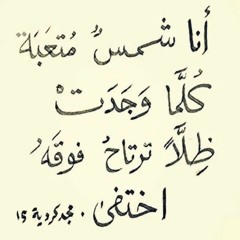 أنا شمسٌ مُتعَبَة
كُلَّما وَجَدَتْ
ظِلاًّ ترتاحُ فوقَهُ
اختفىٰ . مجد كردية 15